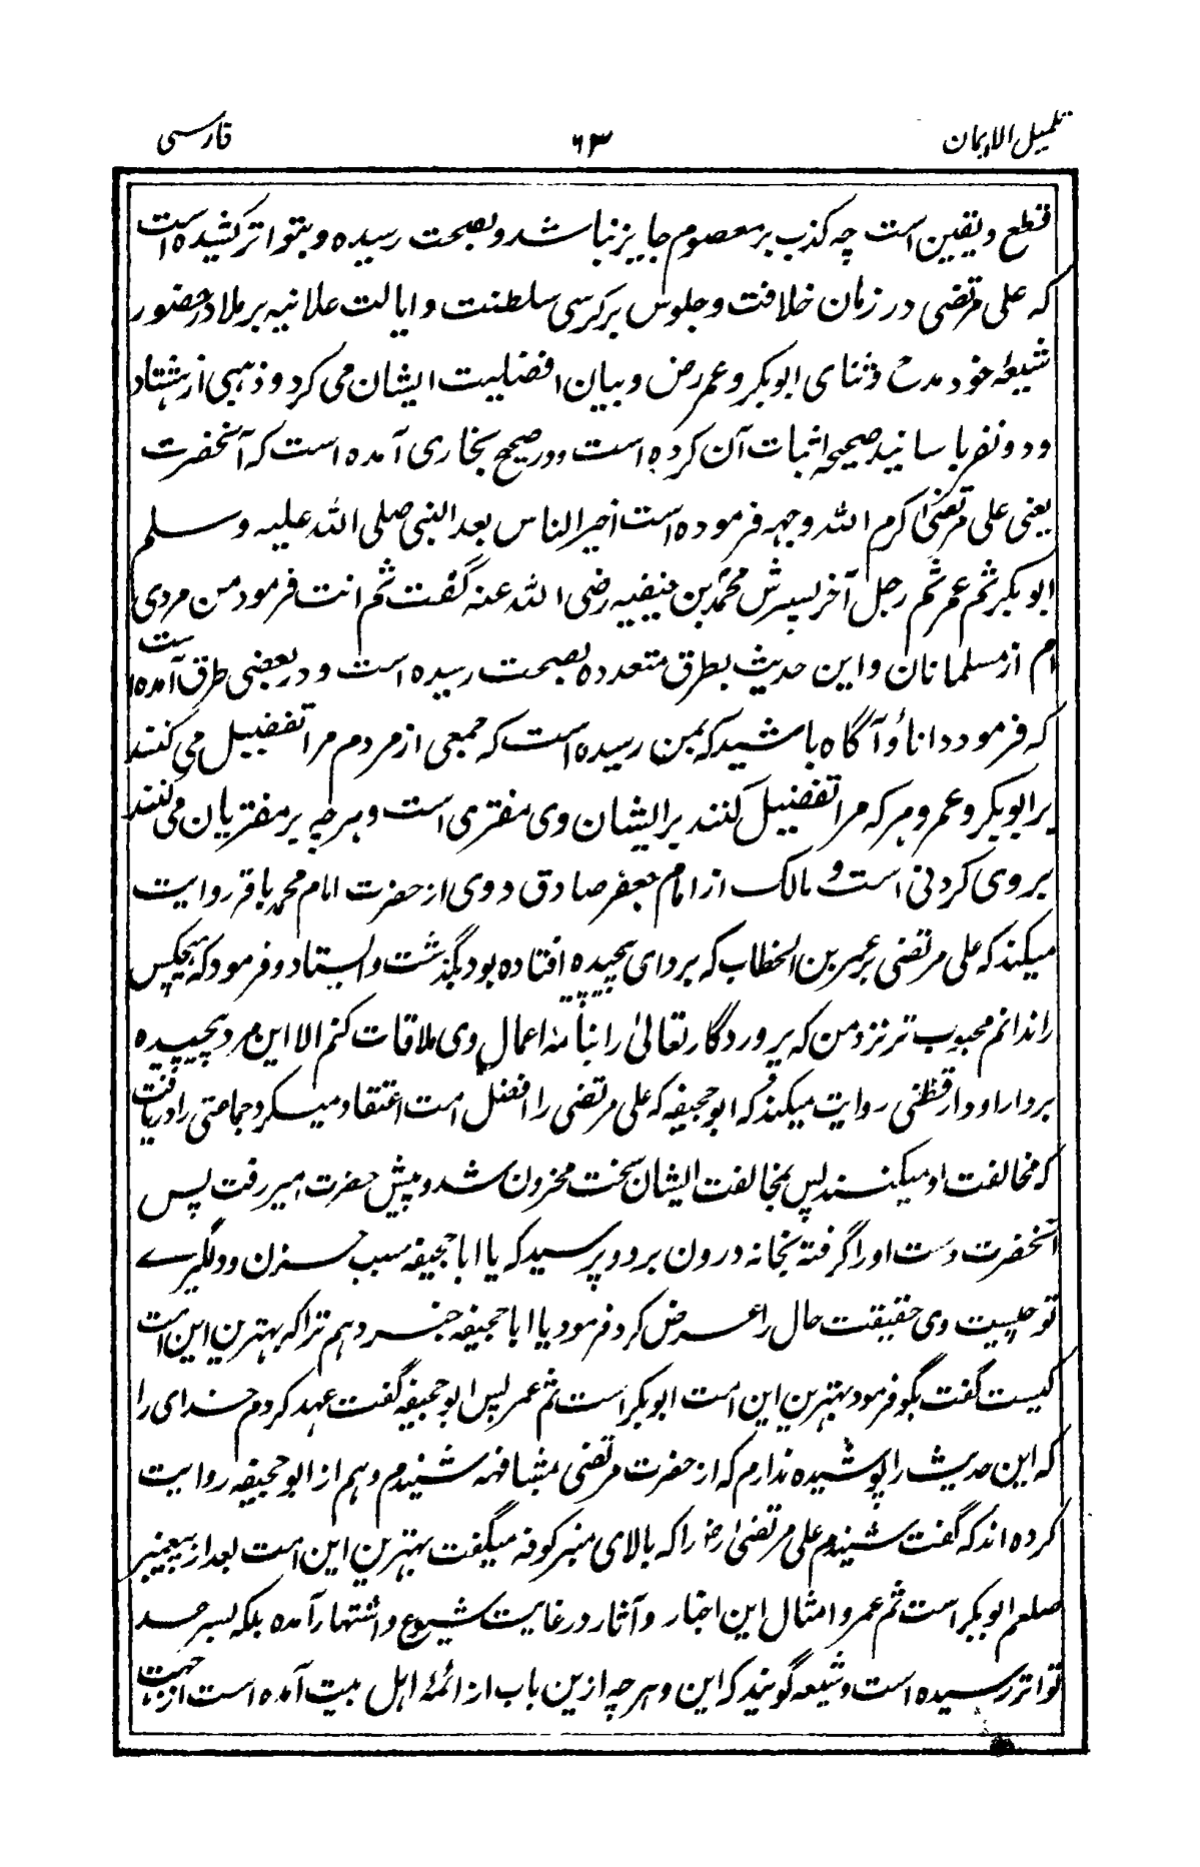 تکمیل الایمان ۶۳ فارسی
قطع و یقین است چه کذب بر معصوم جایز نباشد و بصحت رسیده و بتواتر کشیده است
که علی مرتضی در زمان خلافت و جلوس بر کرسی سلطنت و ایالت علانیه بر ملا در حضور
شیعهٔ خود مدح و ثنای ابوبکر و عمر رض و بیان افضلیت ایشان می کرد و ذهبی از هشتاد
و دو نفر با سانید صحیحه اثبات آن کرده است و در صحیح بخاری آمده است که آنحضرت
یعنی علی مرتضیٰ کرم الله وجهه فرموده است اخیر الناس بعد النبی صلی الله علیه وسلم
ابوبکر ثم عمر ثم رجل آخر پسرش محمد بن حنیفیه رضی الله عنه گفت ثم انت فرمود من مردی
ام از مسلمانان و این حدیث بطرق متعدده بصحت رسیده است و در بعضی طرق آمده است
که فرمود دانا و آگاه باشید که بمن رسیده است که جمعی از مردم مرا تفضیل می کنند
بر ابوبکر و عمر و هر که مرا تفضیل کنند بر ایشان وی مفتری است و هر چه بر مفتریان می کنند
بر وی کردنی است و مالک از امام جعفر صادق و وی از حضرت امام محمد باقر روایت
میکند که علی مرتضی بر عمر بن الخطاب که بردای پیچیده افتاده بود بگذشت و ایستاد و فرمود که هیچکس
را ندانم محبوب تر نزد من که پروردگار تعالیٰ را بنامهٔ اعمال وی ملاقات کنم الا این مرد پیچیده
بردا را و دارقطنی روایت میکند که ابو جحیفه که علی مرتضی را افضل امت اعتقاد میکرد جماعتی را دریافت
که مخالفت او میکنند پس بمخالفت ایشان سخت محزون شد و پیش حضرت امیر رفت پس
آنحضرت دست او را گرفته بخانه درون برد و پرسید که یا ابا جحیفه سبب حزن و دلگیرے
تو چیست وی حقیقت حال را عرض کرد فرمود یا ابا جحیفه خبر دهم ترا که بهترین این امت
کیست گفت بگو فرمود بهترین این امت ابوبکر است ثم عمر پس ابو جحیفه گفت عهد کردم خدای را
که این حدیث را پوشیده ندارم که از حضرت مرتضی بمشافهه شنیدم و هم از ابو جحیفه روایت
کرده اند که گفت شنیدم علی مرتضیٰ رض را که بالای منبر کوفه میگفت بهترین این امت بعد از پیغمبر
صلعم ابوبکر است ثم عمر و امثال این اخبار و آثار در غایت شیوع و اشتهار آمده بلکه بسر حد
تواتر رسیده است و شیعه گویند که این و هر چه ازین باب از ائمهٔ اهل بیت آمده است از جهت